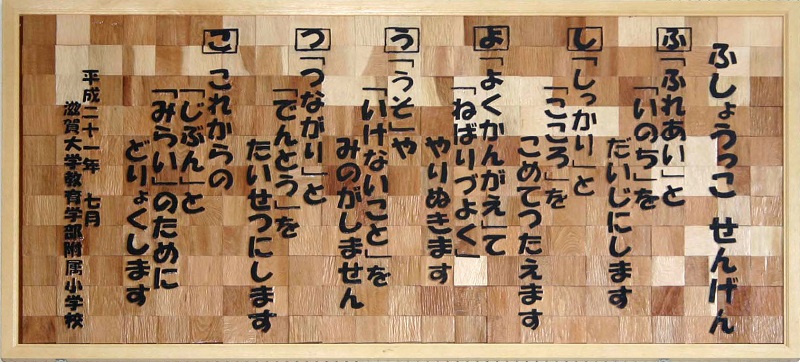 ふしょうっこ せんげん
ふ「ふれあい」と
「いのち」を
だいじにします
し「しっかり」と
「こころ」を
こめてつたえます
よ「よくかんがえ」て
「ねばりづよく」
やりぬきます
う「うそ」や
「いけないこと」を
みのがしません
つ「つながり」と
「でんとう」を
たいせつにします
こ これからの
「じぶん」と
「みらい」のために
どりょくします
平成二十一年 七月
滋賀大学教育学部附属小学校